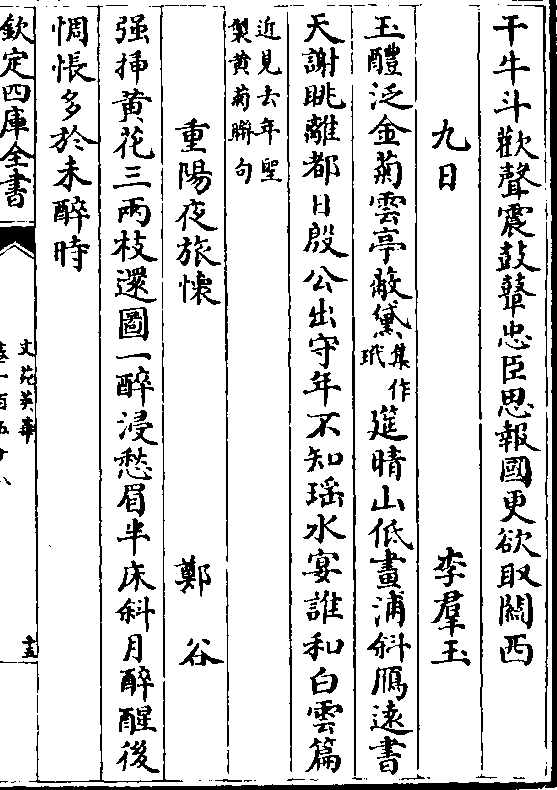 干牛斗歡聲震鼓鼙忠臣思報國更欲取關西
九日 李羣玉
玉醴泛金菊雲亭敞黛集作玳筵晴山低畫浦斜鴈遠書
天謝眺離都日殷公出守年不知瑶水宴誰和白雲篇
近見去年聖
製黄菊聨句
重陽夜旅懷 鄭谷
强揷黄花三兩枝還圖一醉浸愁眉半床斜月醉醒後
惆悵多於未醉時
欽定四庫全書
文苑英華
卷一百五十八
十五